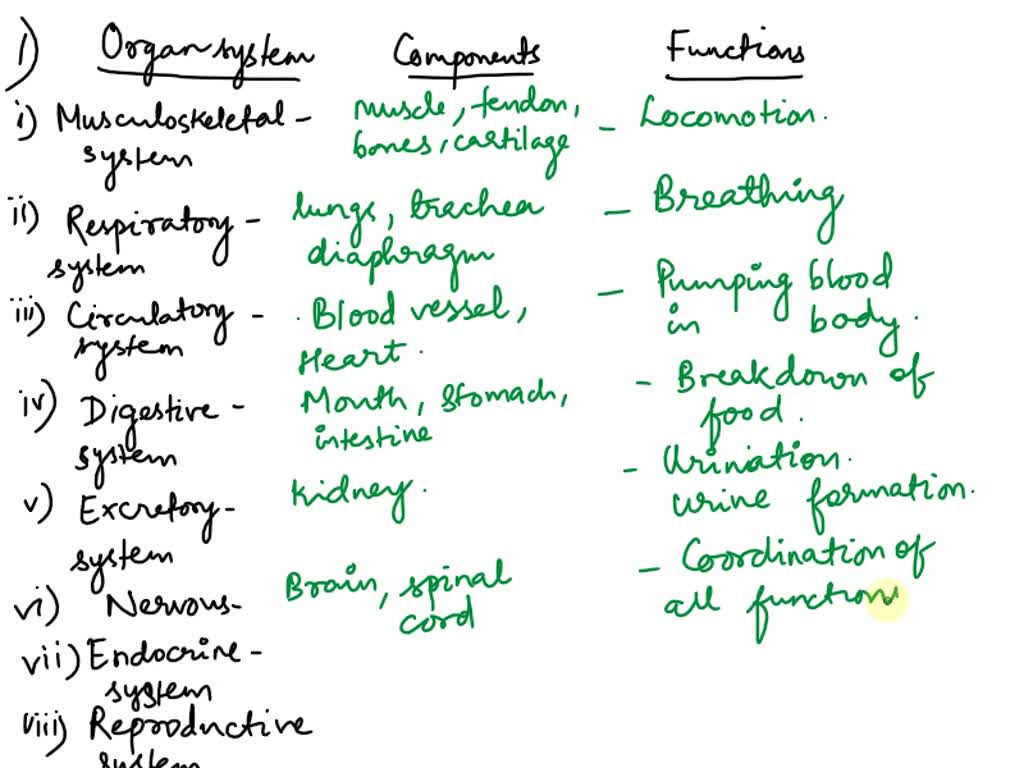 1) Organ system Components Functions
i) Musculoskeletal - muscle, tendon, - Locomotion.
system bones, cartilage
ii) Respiratory - lungs, trachea - Breathing
system diaphragm
iii) Circulatory - Blood vessel, - Pumping blood
system Heart. in body.
iv) Digestive - Mouth, stomach, - Breakdown of
system intestine food.
v) Excretory - kidney. - Urination.
system urine formation.
vi) Nervous - Brain, spinal - Coordination of
cord all function
vii) Endocrine -
system
viii) Reproductive
system